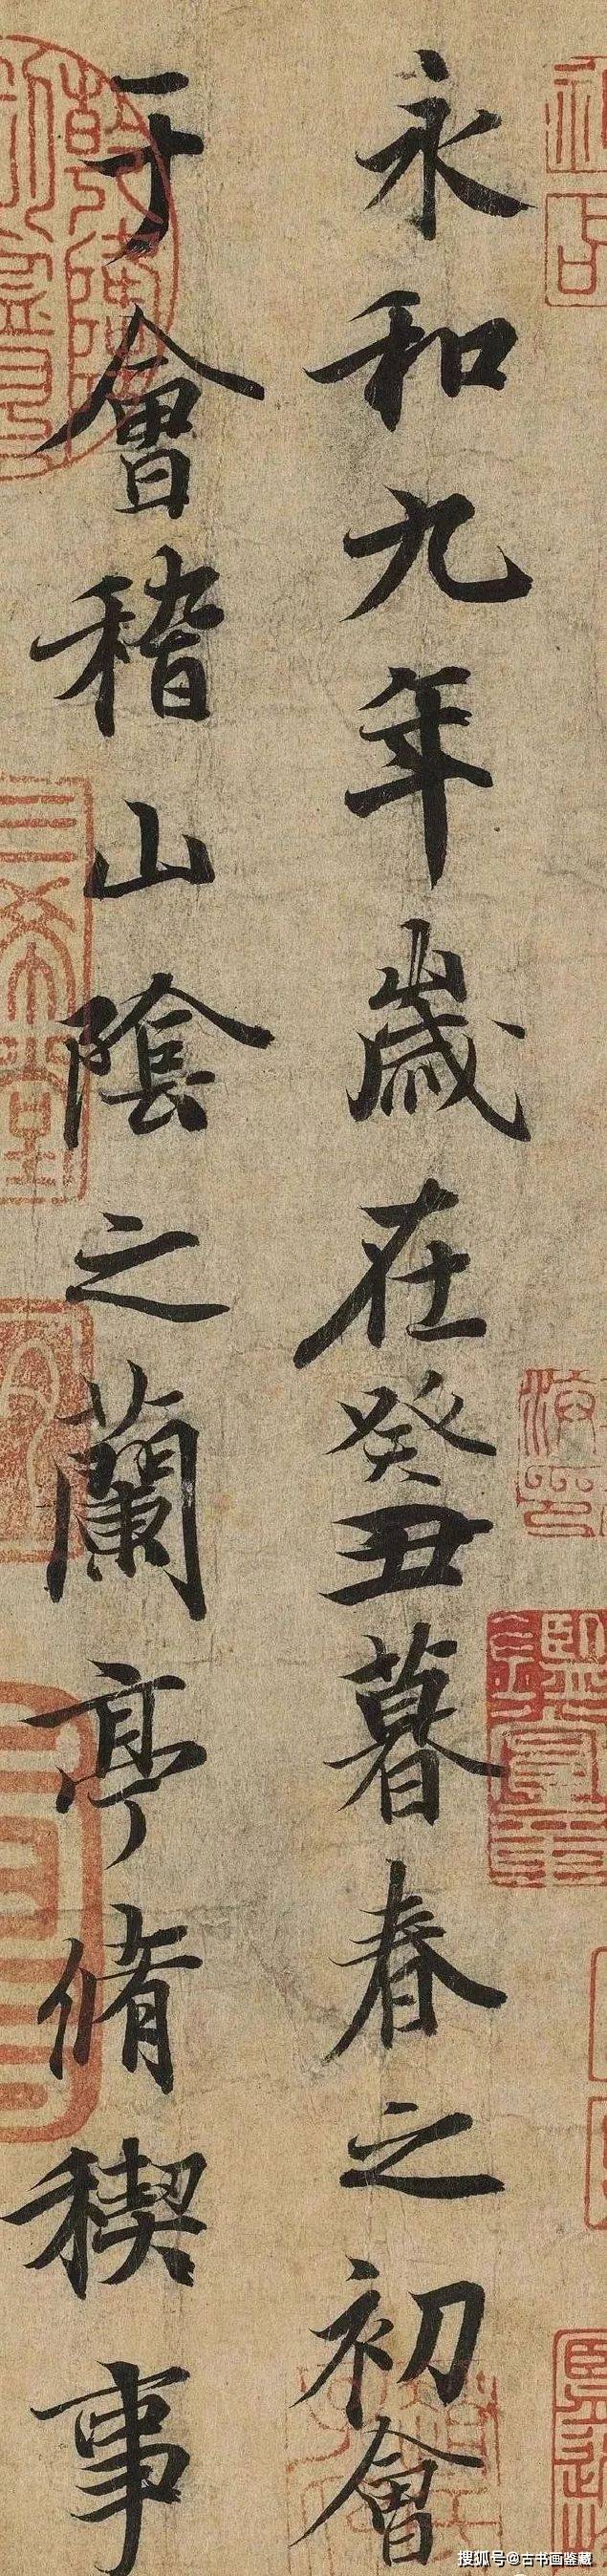 永和九年歲在癸丑暮春之初會
于會稽山陰之蘭亭脩稧事
三希堂
搜狐号@古书画鉴藏